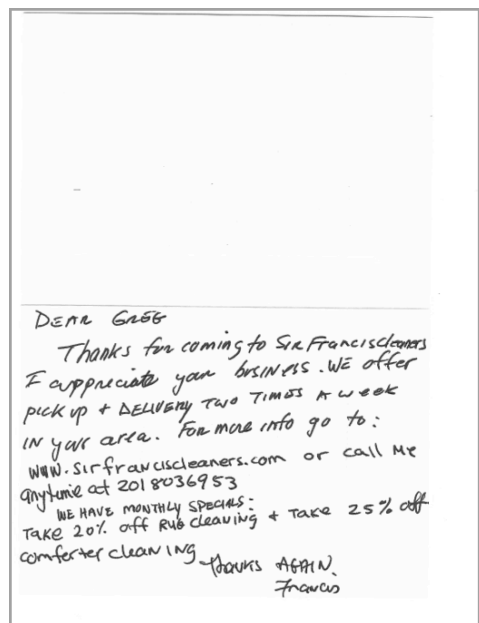 DEAR GREG
Thanks for coming to Sir Franciscleaners
I appreciate your business. WE offer
pick up + DELIVERY TWO TIMES A WEEK
IN your area. For more info go to:
WWW.sirfranciscleaners.com or call Me
anytime at 2018036953
WE HAVE MONTHLY SPECIALS:
TAKE 20% off RUG cleaning + TAKE 25% off
comforter cleaning
Thanks AGAIN.
Francis